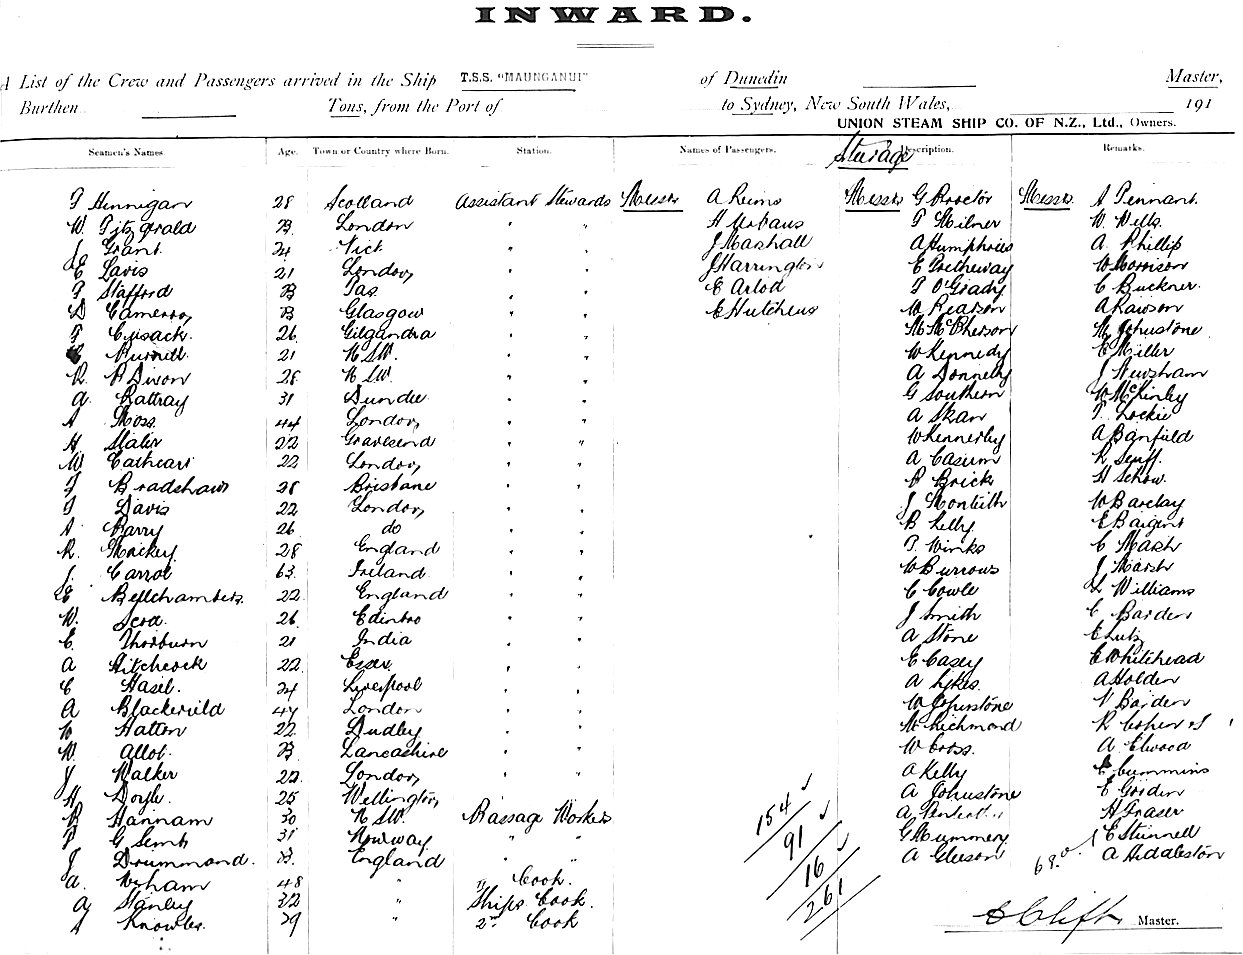 INWARD.
A List of the Crew and Passengers arrived in the Ship T.S.S. "MAUNGANUI" of Dunedin Master,
Burthen Tons, from the Port of to Sydney, New South Wales, 191
UNION STEAM SHIP CO. OF N.Z., Ltd., Owners.
Seamen's Names. Age. Town or Country where Born. Station. Names of Passengers. Description. Remarks.
Steerage
Hennigan 28 Scotland Assistant Stewards Messrs A Reims Messrs G Proctor Messrs A Pennant
W. Fitzgerald 23 London " " H Urbaus P Milner W. Wells.
J Grant 24 Vict " " J Marshall A Humphries A. Phillip
E Davis 21 London " " J Harrington E Tretheway W Morrison
Stafford 23 Tas " " E Arlod O'Grady C Buckner
D Cameron 23 Glasgow " " E Hutchens W Pearson A Rawson
Cusack 26 Gilgandra " " McPherson M Johnstone
21 N.S.W. " " W Kennedy E Miller
R. P Dixon 28 N.S.W. " " A Donnelly J Newsham
A Rattray 31 Dundee " " G Southern W McKinley
A Moss 44 London " " A Skan T Lockie
H Slater 22 Gravesend " " W Kennerley A Banfield
W Cathcart 22 London " " A R Senff.
Bradshaw 28 Brisbane " " P Brick H Schow.
Davis 22 London " " J Monteith W Barclay
A Barry 26 do " " B Kelly E Bargent
R. Mackey 28 England " " T. Winks C Mash
J. Carrol 63 Ireland " " W Burrows J Marsh
E Bellchambers 22 England " " C Cowle L Williams
W. Scott 26 Edinboro " " J Smith C Barden
E. Thorburn 21 India " " A Stone E Lutz
A Hitchcock 22 Essex " " E Casey E Whitehead
C Hasel. 24 Liverpool " " A Sykes. A Holden
A 44 London " " W Johnstone V Barden
W Hatton 22 Dudley " " Richmond R
W. Allot 23 Lancashire " " W Cross. A. Elwood
J Walker 22 London " " A Kelly E Cummins
H Doyle. 25 Wellington A Johnstone E Gordon
R Hannam 30 N.S.W. Passage Workers 154 A H Fraser
31 Norway " " 91 G Mummery E Stinnell
J Drummond. 23. England " " 16 A Gleeson 68. A Hidaleston
A. 48 " Cook. 261
A Stanley 32 " Ships Cook.
A Knowles. 29 " 2nd Cook
Clift Master.